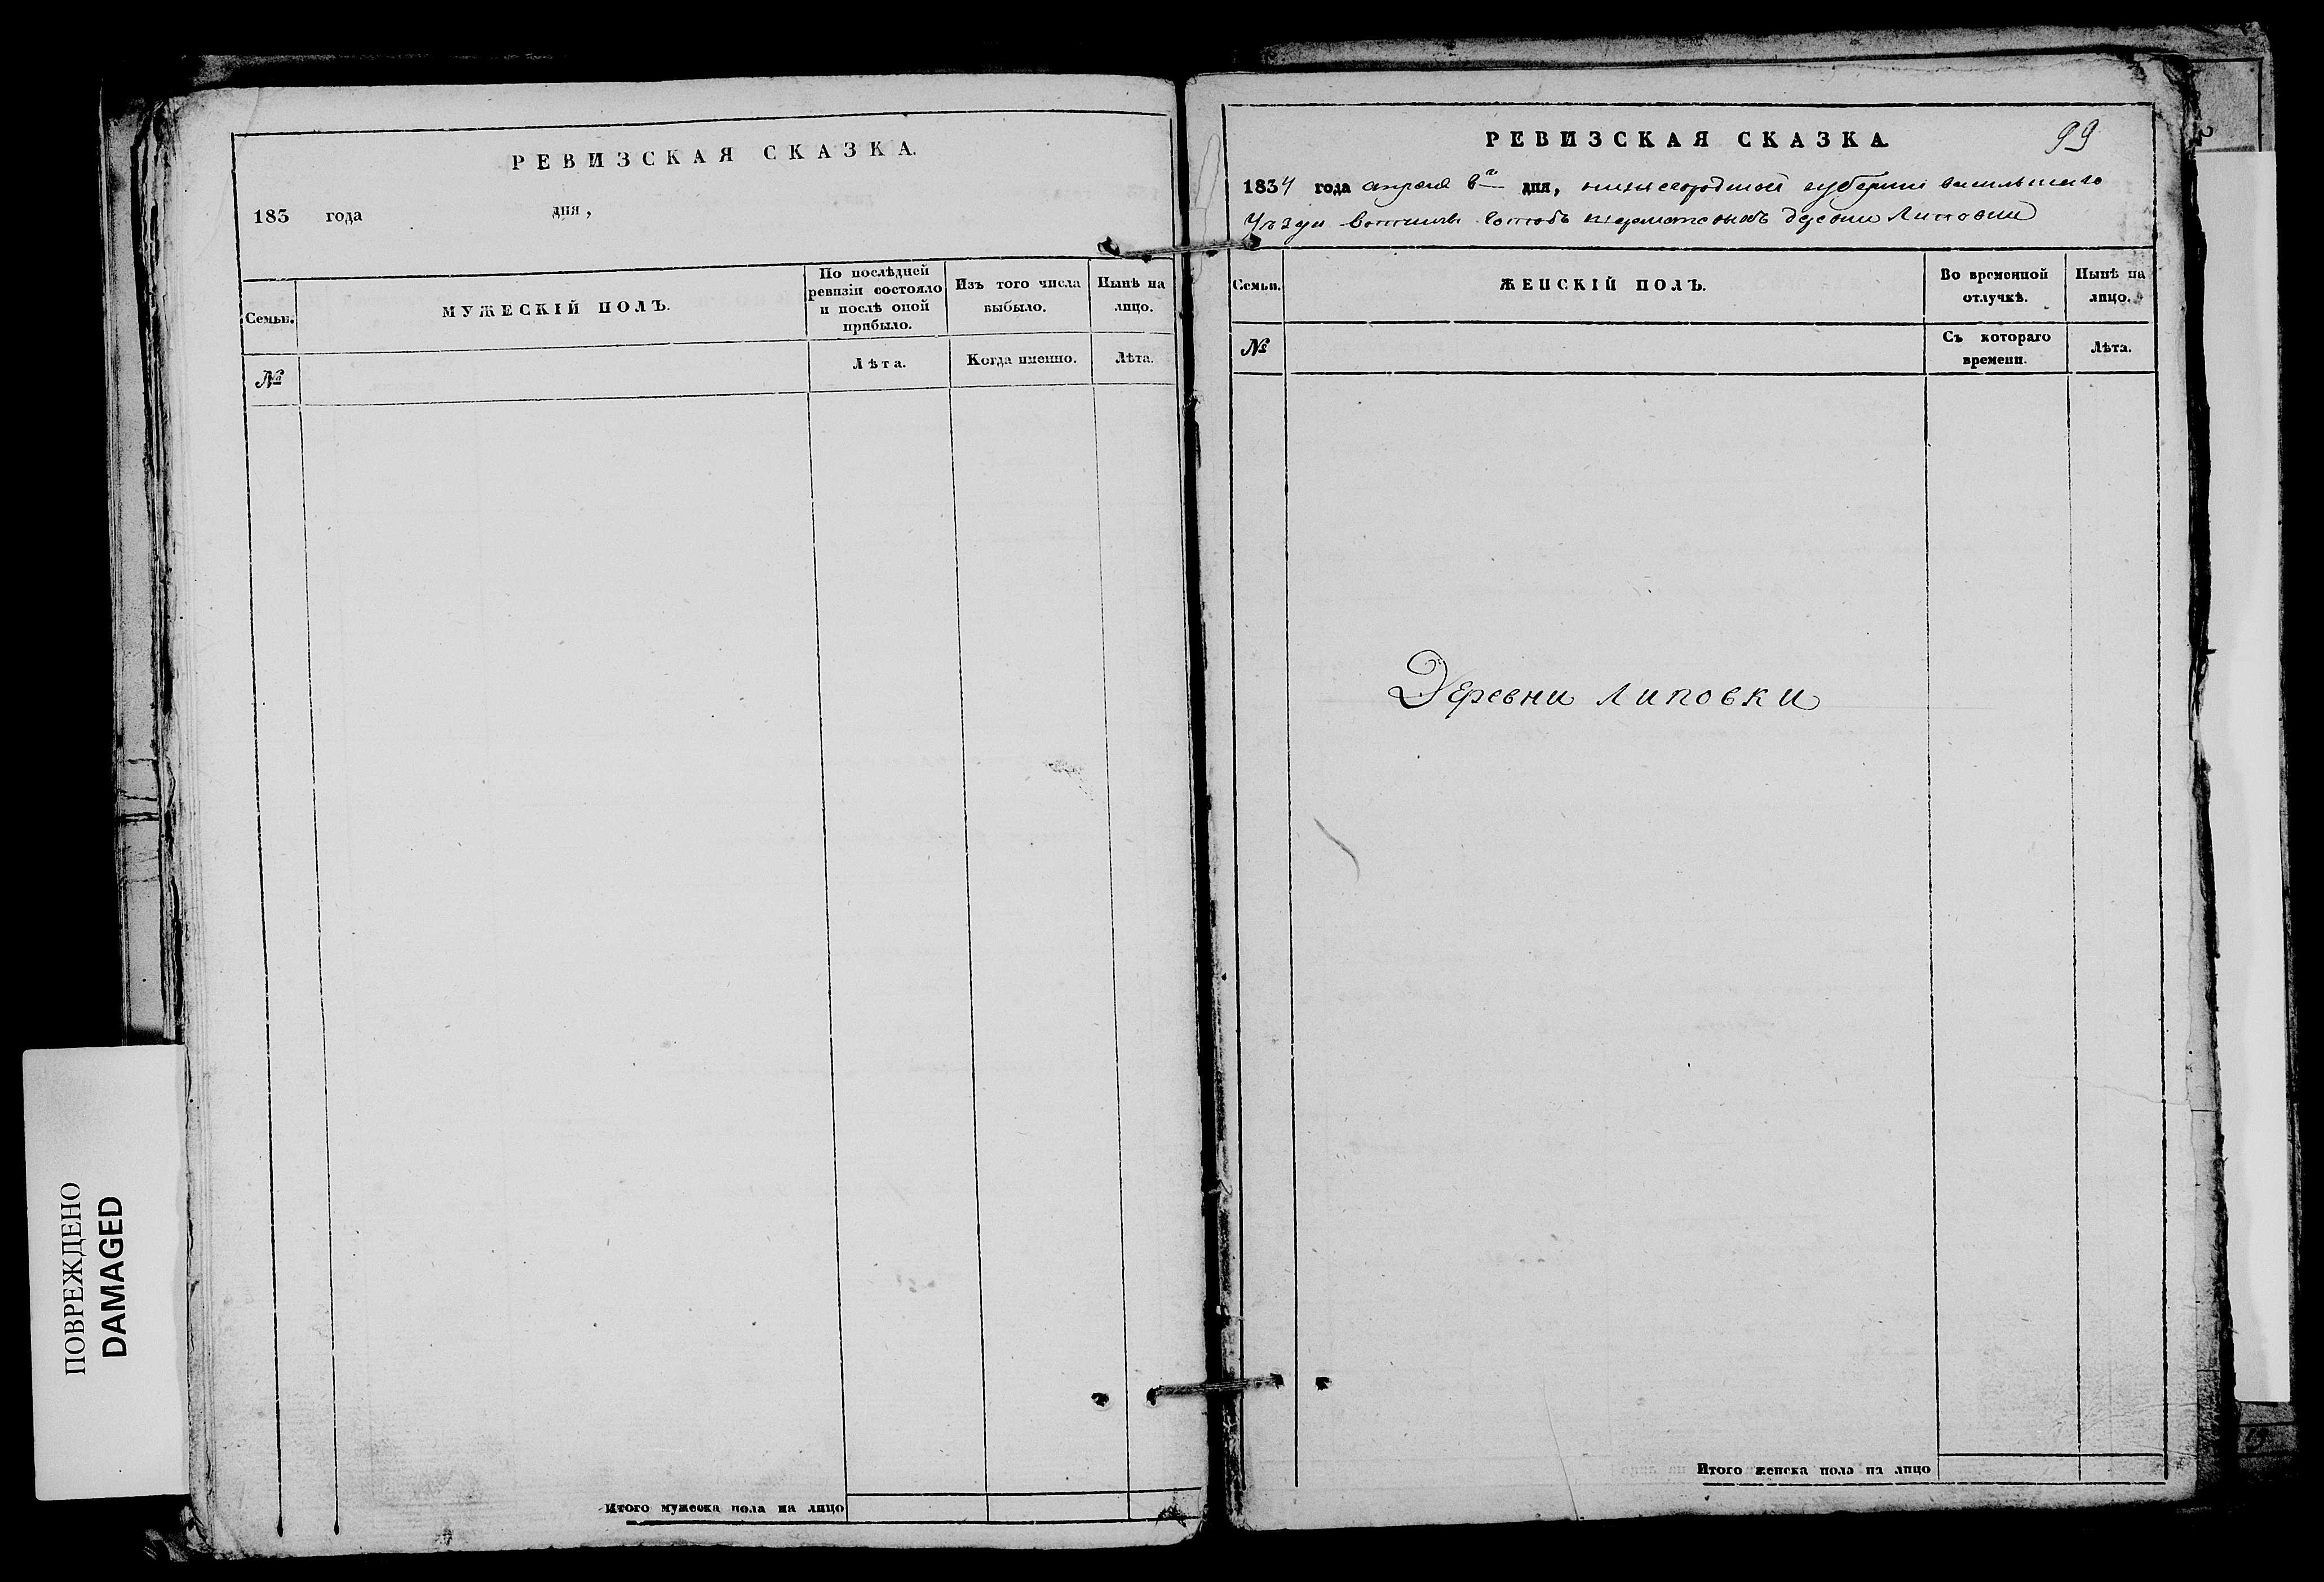 РЕВИЗСКАЯ СКАЗКА.
183 года дня,
Семьи.
МУЖЕСКІЙ ПОЛЪ.
По послѣдней ревизіи состояло и послѣ оной прибыло.
Изъ того числа выбыло.
Нынѣ на лицо.
№
Лѣта.
Когда именно.
Лѣта.
Итого мужеска пола на лицо
РЕВИЗСКАЯ СКАЗКА.
99
1834 года апреля дня, нижегородской губернии васильскаго
уѣзда вотчины деревни Липовки
Семьи.
ЖЕНСКІЙ ПОЛЪ.
Во временной отлучкѣ.
Нынѣ на лицо.
№
Съ котораго времени.
Лѣта.
Деревни Липовки
Итого женска пола на лицо
ПОВРЕЖДЕНО
DAMAGED